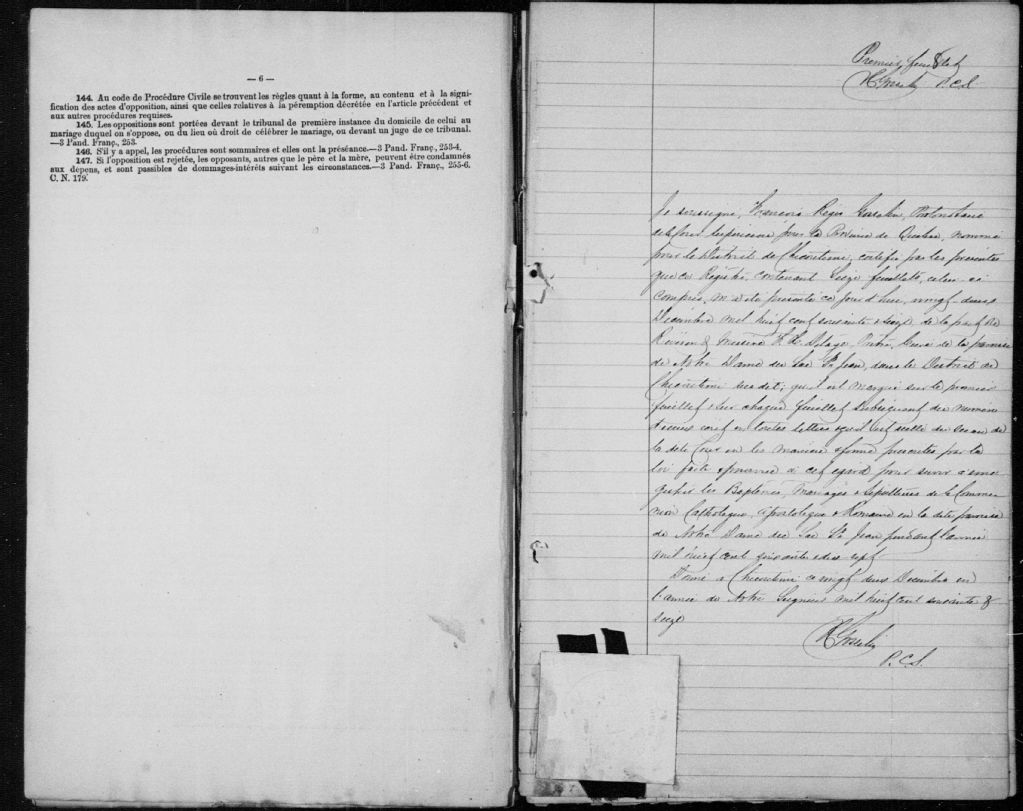 — 6 —
144. Au code de Procédure Civile se trouvent les règles quant à la forme, au contenu et à la signi-
fication des actes d'opposition, ainsi que celles relatives à la péremption décrétée en l'article précédent et
aux autres procédures requises.
145. Les oppositions sont portées devant le tribunal de première instance du domicile de celui au
mariage duquel on s'oppose, ou du lieu où droit de célébrer le mariage, ou devant un juge de ce tribunal.
—3 Pand. Franç., 253.
146. S'il y a appel, les procédures sont sommaires et elles ont la préséance.—3 Pand. Franç., 253-4.
147. Si l'opposition est rejetée, les opposants, autres que le père et la mère, peuvent être condamnés
aux dépens, et sont passibles de dommages-intérêts suivant les circonstances.—3 Pand. Franç., 255-6.
C. N. 179.
Premier feuillet
Gosselin P.C.S.
Je soussigné, François Régis Gosselin, Protonotaire
de la Cour Supérieure pour la Province de Québec, nommé
pour le District de Chicoutimi, certifie par les présentes
que ce Régistre, contenant Seize feuillets, celui ci
compris, m'a été présenté ce jour d'hui, vingt-deux
Décembre mil huit cent soixante & seize de la part du
Révérend Messire Delage, Prêtre, Curé de la paroisse
de Notre Dame du Lac St Jean, dans le District de
Chicoutimi susdit; qu'il est marqué sur le premier
feuillet & sur chaque feuillet subséquent du numéro
écrit en toutes lettres et qu'il est scellé du sceau de
la dite Cour en la manière & forme prescrites par la
loi faite & pourvue à cet égard pour servir à enre-
gistrer les Baptêmes, Mariages & Sépultures de la Commu-
nion Catholique, Apostolique & Romaine en la dite paroisse
de Notre Dame du Lac St Jean pendant l'année
mil huit cent soixante & dix sept
Donné à Chicoutimi ce vingt deux Décembre en
l'année de Notre Seigneur mil huit cent soixante &
seize
Gosselin
P.C.S.